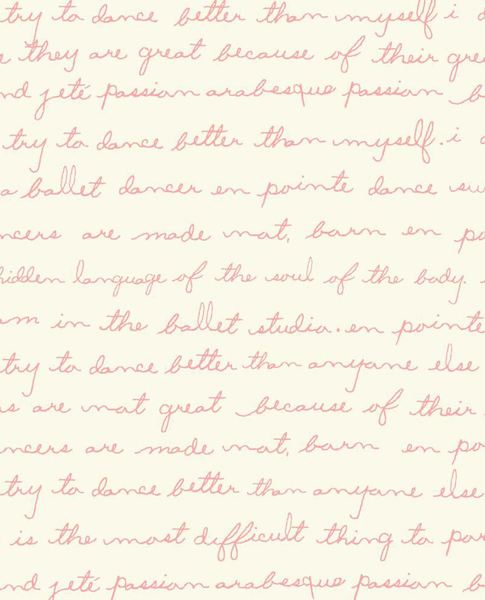 try to dance better than myself i d
e they are great because of their gre
nd jeté passion arabesque passion b
try to dance better than myself. i d
a ballet dancer en pointe dance sw
ncers are made not, born en po
hidden language of the soul of the body.
am in the ballet studio. en pointe
try to dance better than anyone else
s are not great because of their
ncers are made not, born en po
try to dance better than anyone else
is the most difficult thing to por
nd jeté passion arabesque passion b